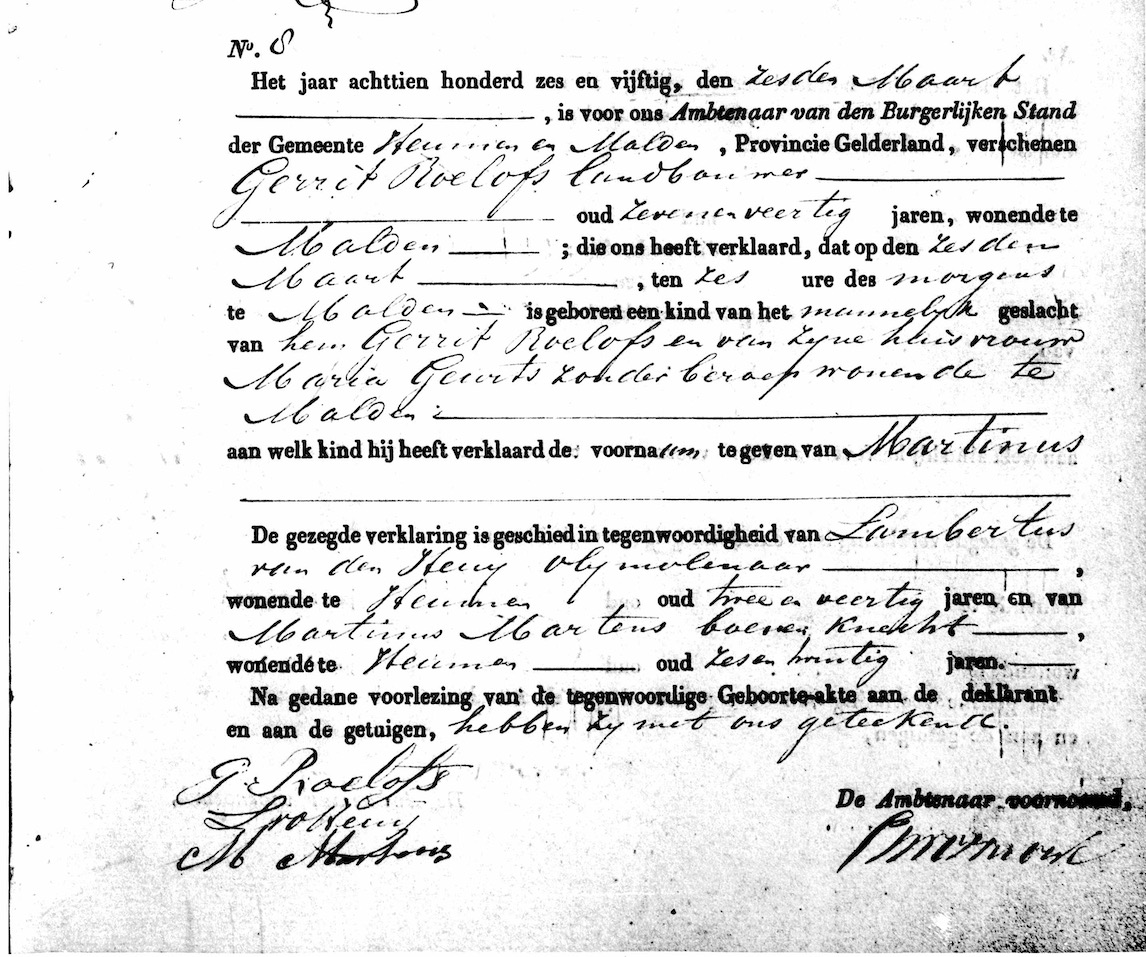 No. 8
Het jaar achttien honderd zes en vijftig, den zesden Maart
, is voor ons Ambtenaar van den Burgerlijken Stand
der Gemeente Heumen en Malden, Provincie Gelderland, verschenen
Gerrit Roelofs landbouwer
oud zevenenveertig jaren, wonende te
Malden ; die ons heeft verklaard, dat op den zesden
Maart , ten zes ure des morgens
te Malden is geboren een kind van het mannelyk geslacht
van hem Gerrit Roelofs en van zyne huisvrouw
Maria Geurts zonder beroep wonende te
Malden
aan welk kind hij heeft verklaard de voornaam te geven van Martinus
De gezegde verklaring is geschied in tegenwoordigheid van Lambertus
van den olymolenaar ,
wonende te Heumen oud twee en veertig jaren en van
Martinus Martens boeren knecht ,
wonende te Heumen oud zesentwintig jaren.
Na gedane voorlezing van de tegenwoordige Geboorte-akte aan de deklarant
en aan de getuigen, hebben zy met ons geteekend.
G Roelofs
M Martens
De Ambtenaar voornoemd,